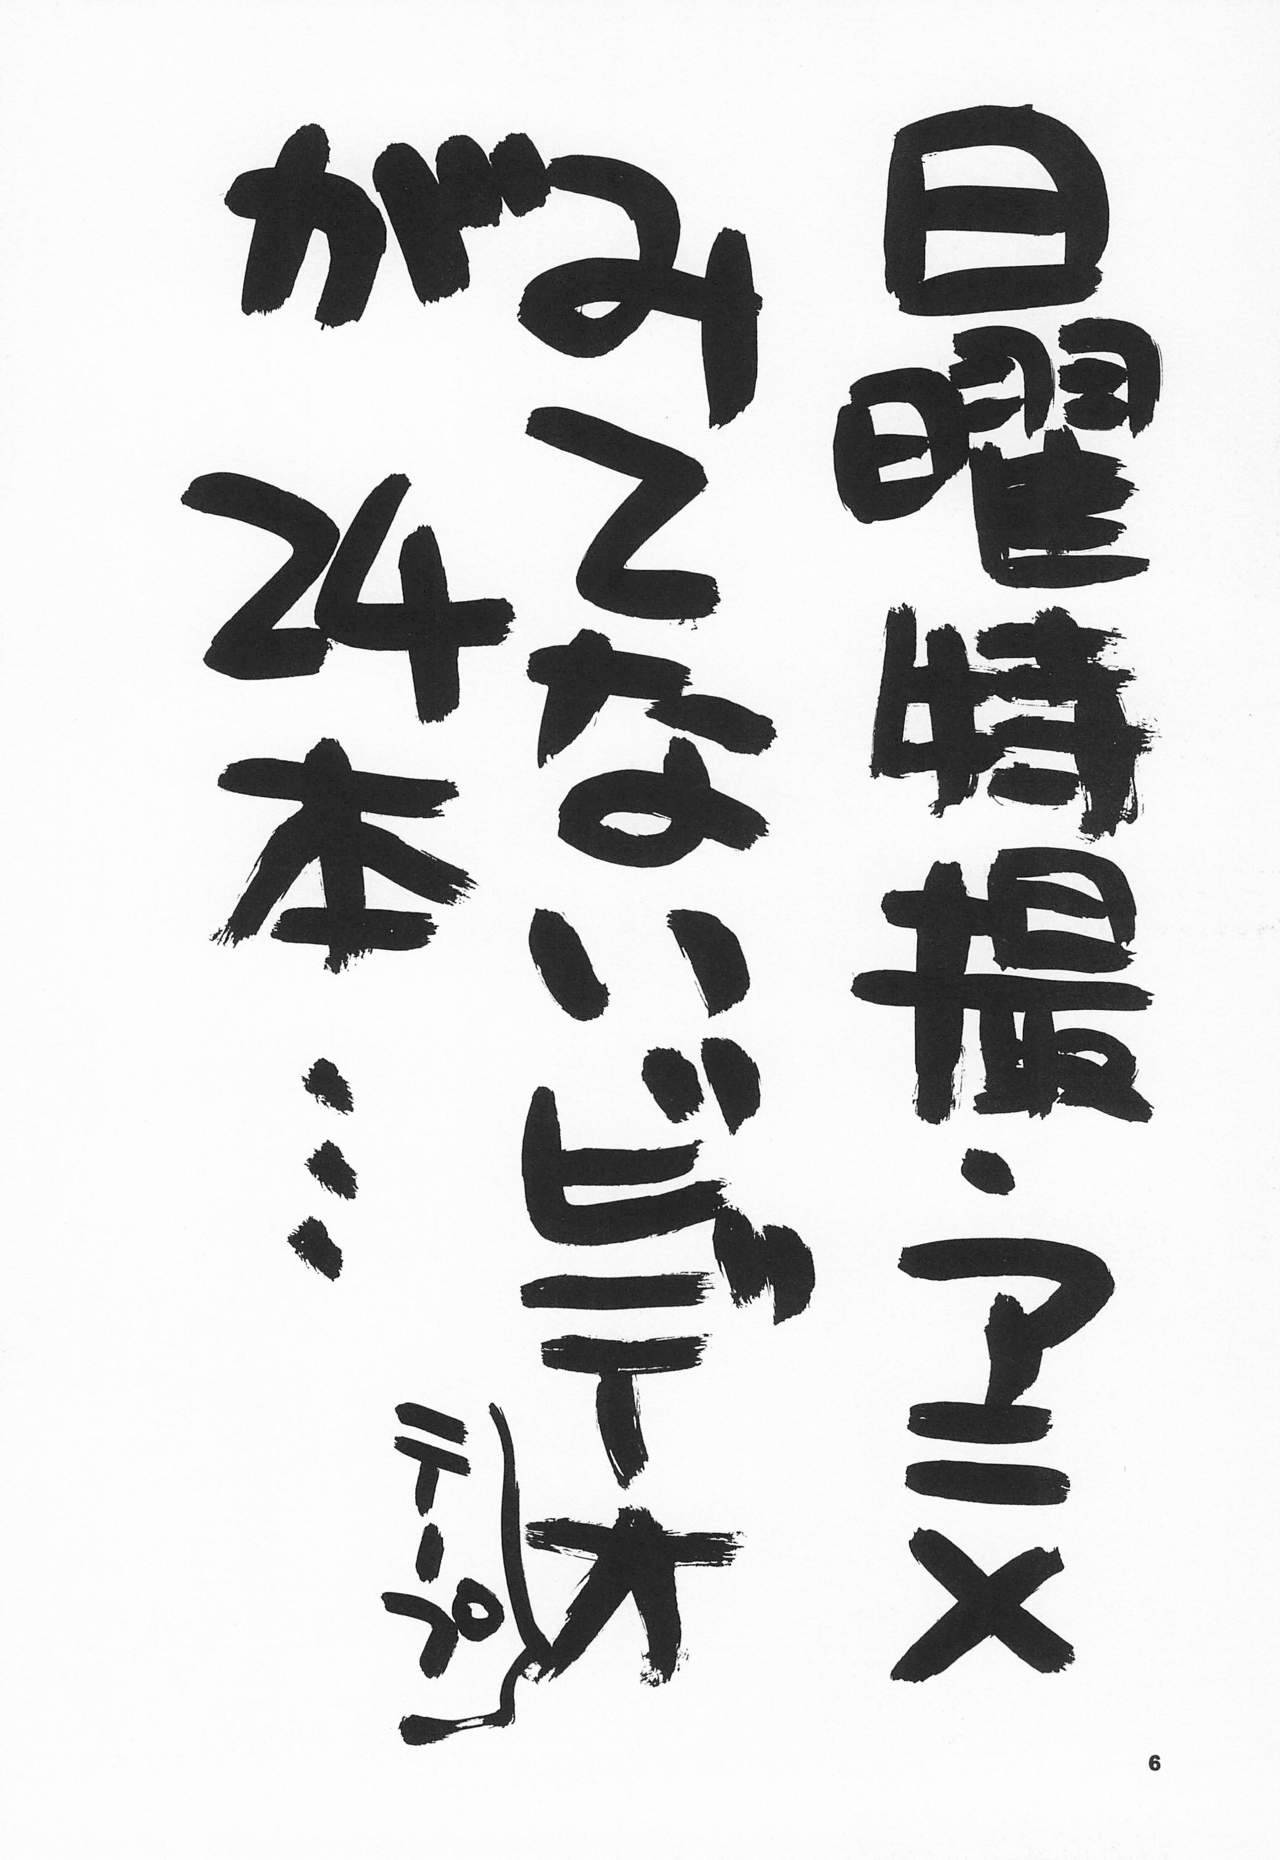 日曜特撮・アニメ
みてないビデオ
テープ
が24本…
6